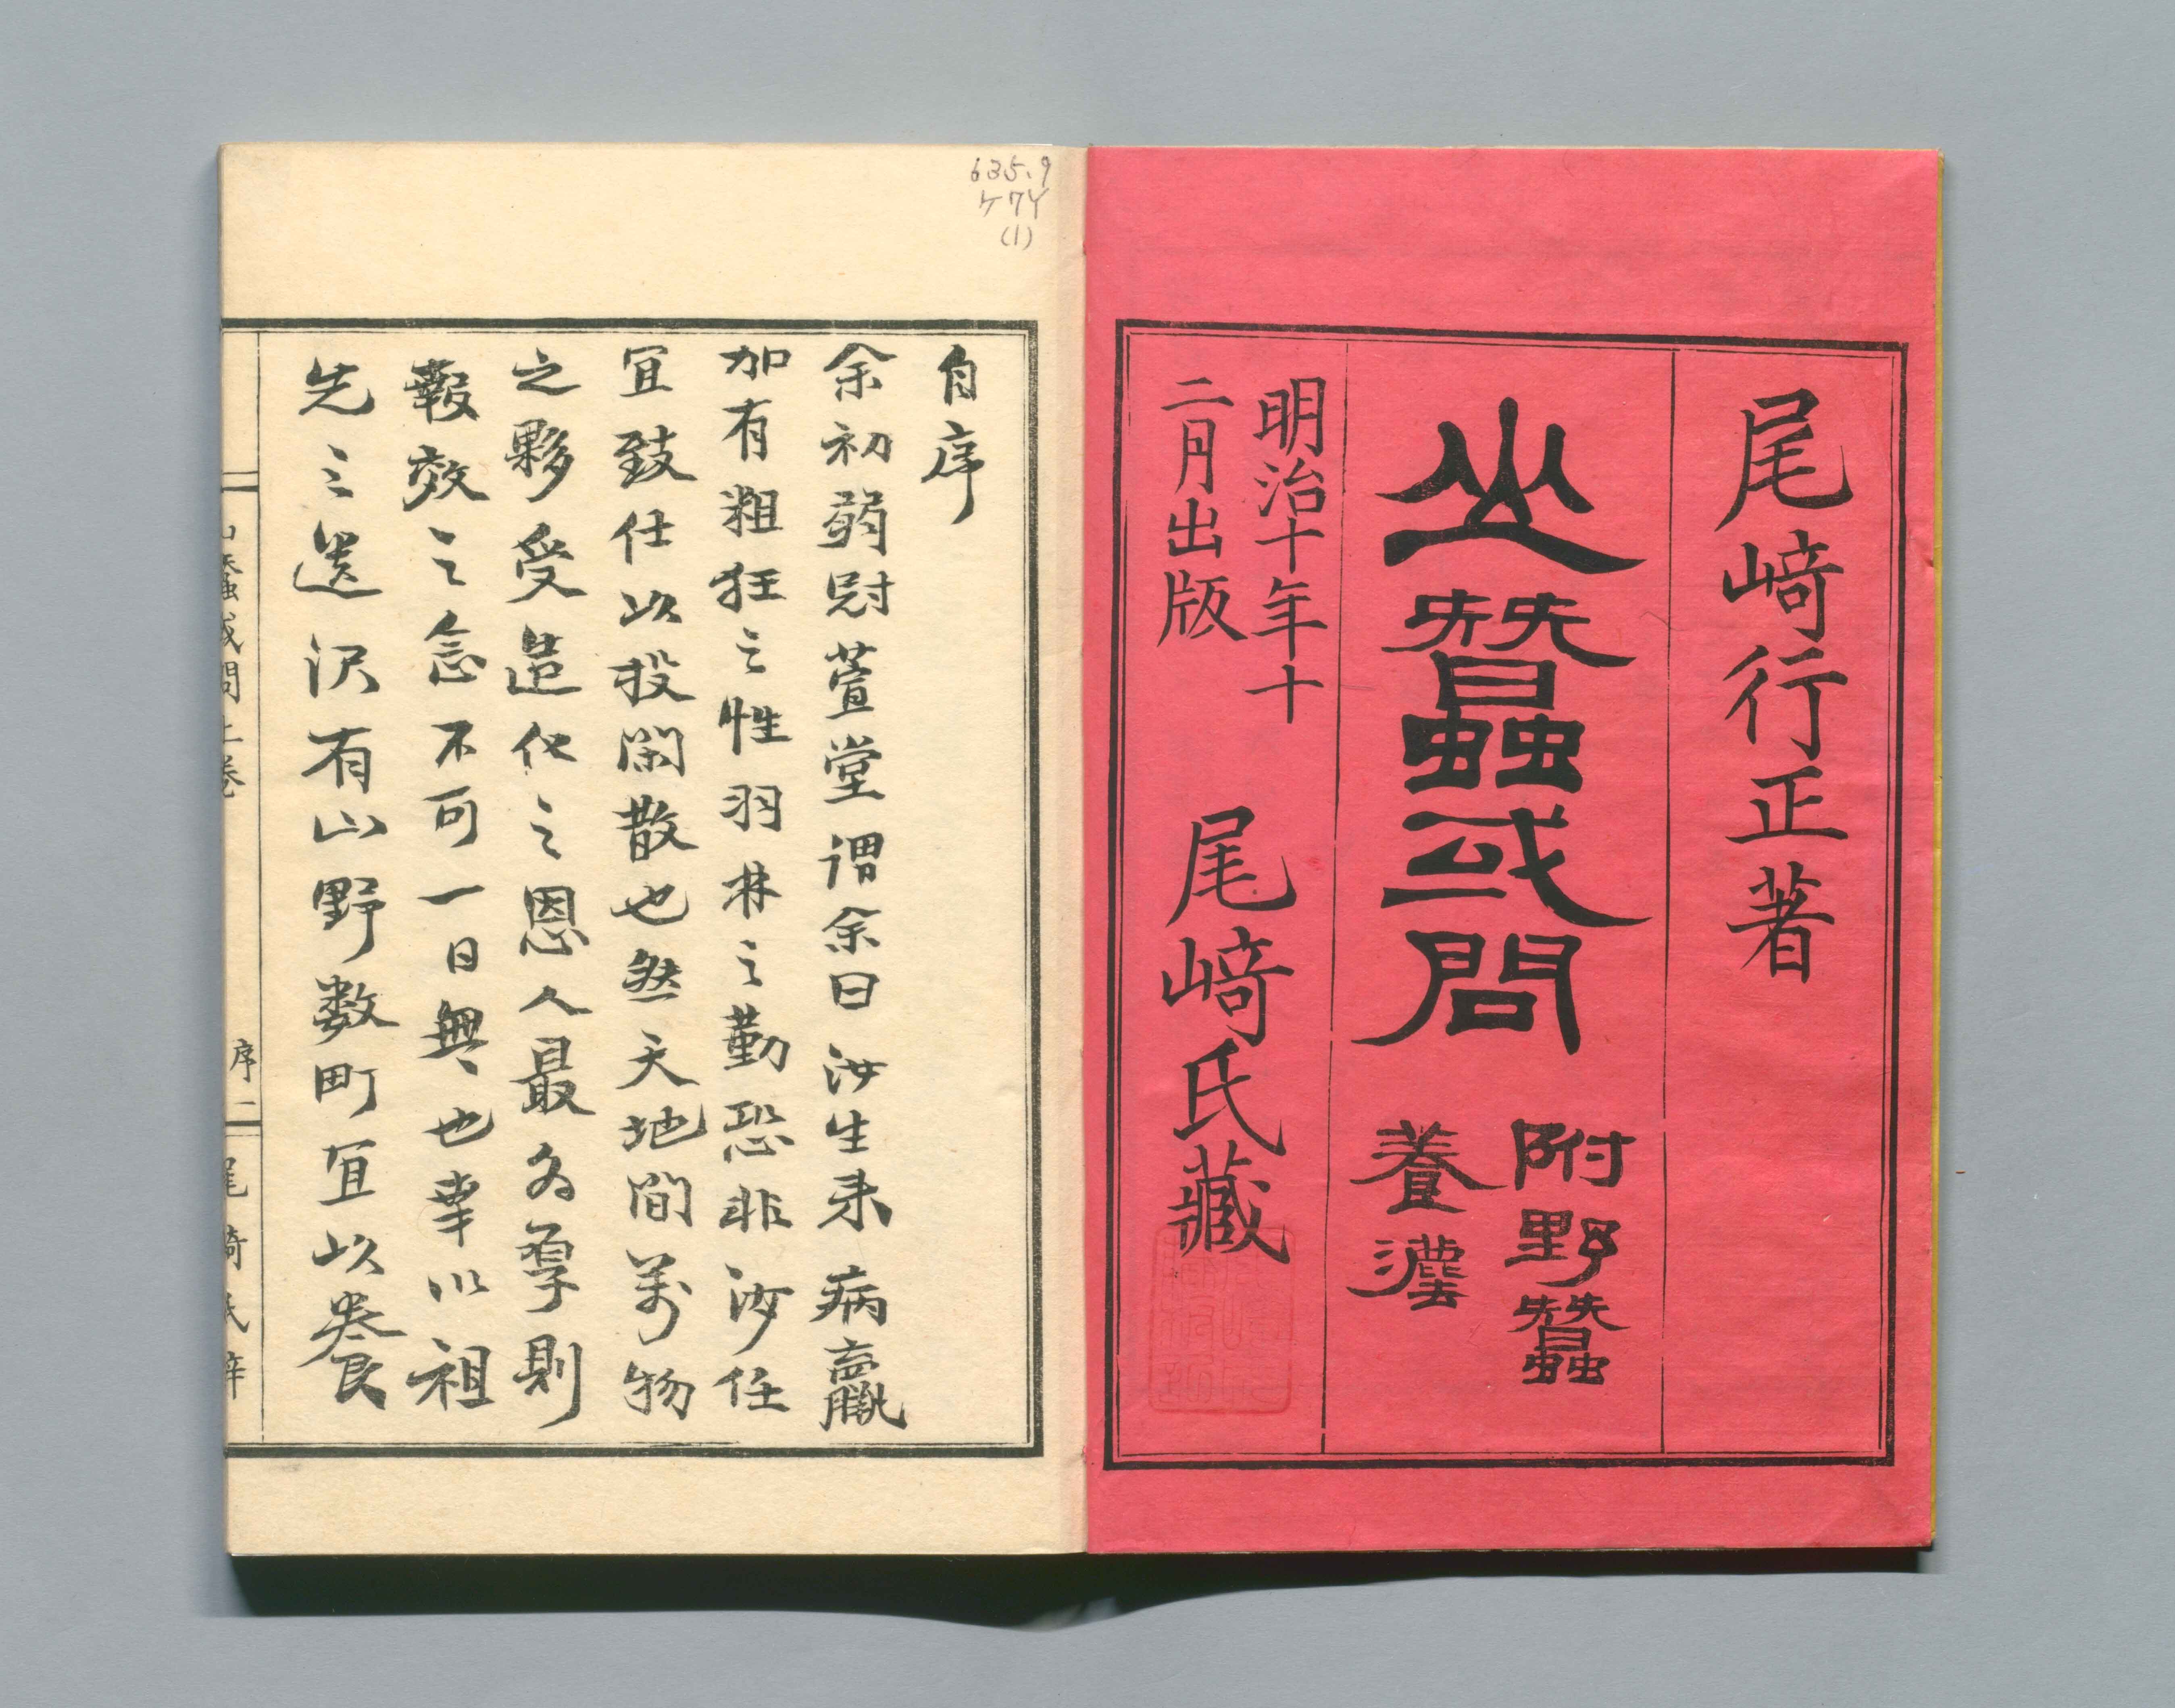 尾﨑行正著
山蠶或問
附野蠶
養灋
明治十年十
二月出版
尾﨑氏藏
635.9
ケ7Y
(1)
自序
余初弱尉萱堂謂余曰汝生来病羸
加有粗狂之性羽林之勤恐非汝任
宜致仕以投閑散也然天地間萬物
之夥受造化之恩人最為厚則
報效之念不可一日無也幸以祖
先之遺沢有山野数町宜以養
山蠶或問上卷
序一
尾﨑氏梓